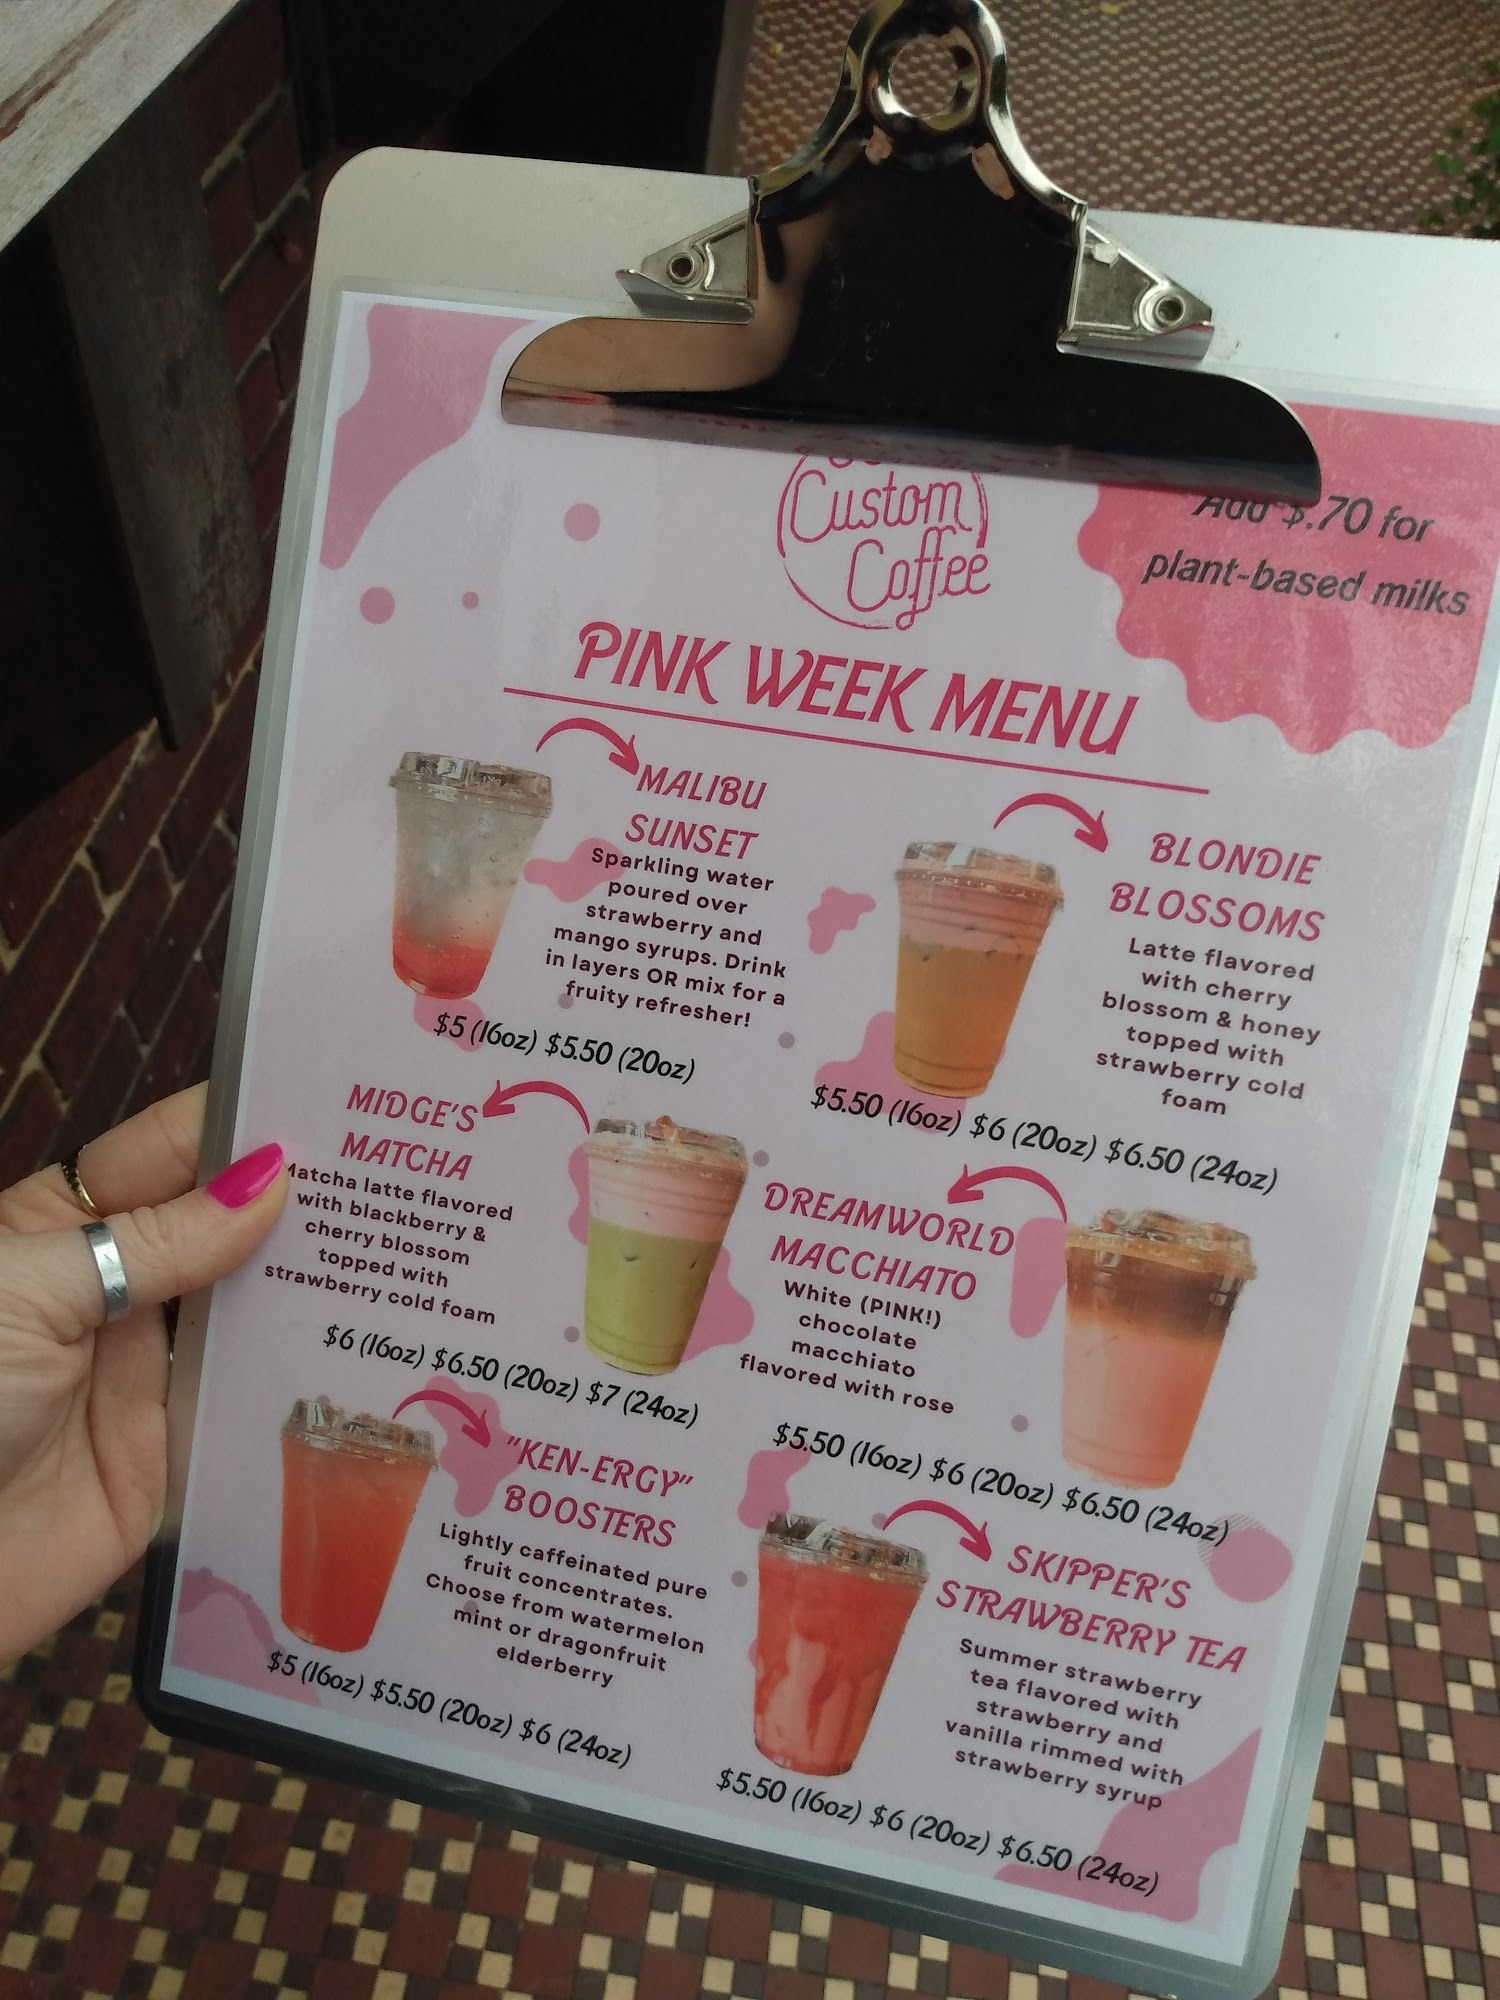 Custom
Coffee
Add $.70 for
plant-based milks
PINK WEEK MENU
MALIBU
SUNSET
Sparkling water
poured over
strawberry and
mango syrups. Drink
in layers OR mix for a
fruity refresher!
$5 (16oz) $5.50 (20oz)
BLONDIE
BLOSSOMS
Latte flavored
with cherry
blossom & honey
topped with
strawberry cold
foam
$5.50 (16oz) $6 (20oz) $6.50 (24oz)
MIDGE'S
MATCHA
Matcha latte flavored
with blackberry &
cherry blossom
topped with
strawberry cold foam
$6 (16oz) $6.50 (20oz) $7 (24oz)
DREAMWORLD
MACCHIATO
White (PINK!)
chocolate
macchiato
flavored with rose
$5.50 (16oz) $6 (20oz) $6.50 (24oz)
"KEN-ERGY"
BOOSTERS
Lightly caffeinated pure
fruit concentrates.
Choose from watermelon
mint or dragonfruit
elderberry
$5 (16oz) $5.50 (20oz) $6 (24oz)
SKIPPER'S
STRAWBERRY TEA
Summer strawberry
tea flavored with
strawberry and
vanilla rimmed with
strawberry syrup
$5.50 (16oz) $6 (20oz) $6.50 (24oz)